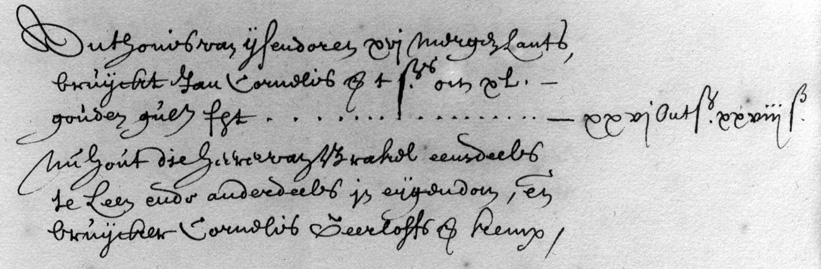 Anthonis van ijsendoren xvj mergen Lants,
bruijckt Jan Cornelis om xl. —
gouden gulden — xxvj xxviij
Nu hout die heere van Brakel eensdeels
te Leen ende anderdeels jn eijgendom, en
bruijcker Cornelis